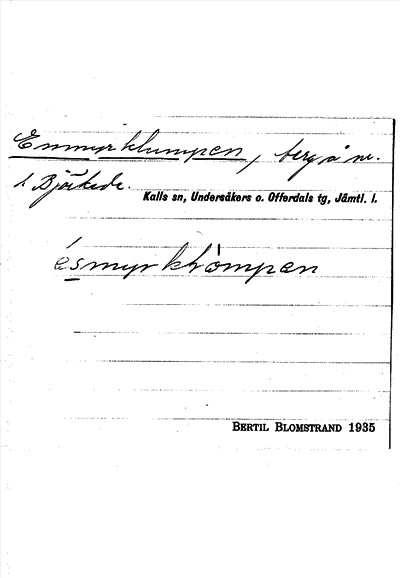 Enmyrklumpen, berg å nr.
t. Björkede.
Kalls sn, Undersåkers o. Offerdals tg, Jämtl. l.
BERTIL BLOMSTRAND 1935